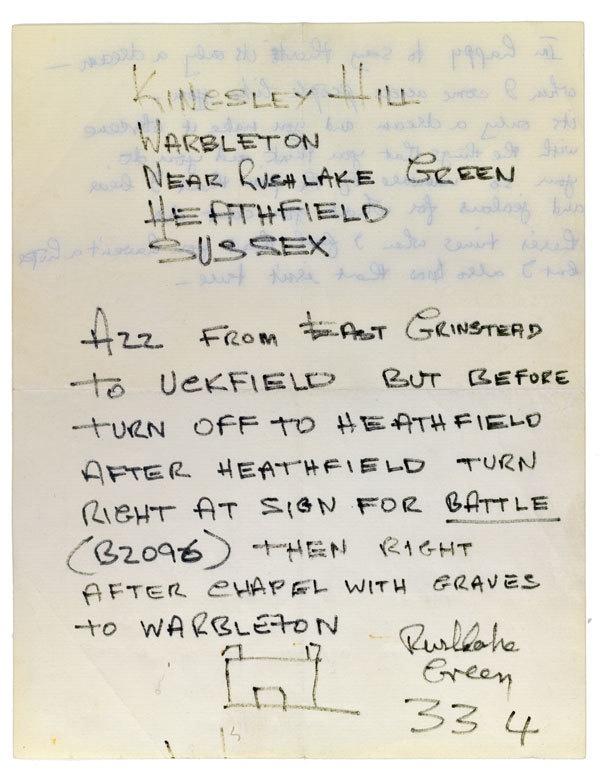 KINGSLEY HILL
WARBLETON
NEAR RUSHLAKE GREEN
HEATHFIELD
SUSSEX
A22 FROM EAST GRINSTEAD
TO UCKFIELD BUT BEFORE
TURN OFF TO HEATHFIELD
AFTER HEATHFIELD TURN
RIGHT AT SIGN FOR BATTLE
(B2096) THEN RIGHT
AFTER CHAPEL WITH GRAVES
TO WARBLETON
Rushlake
Green
33 4